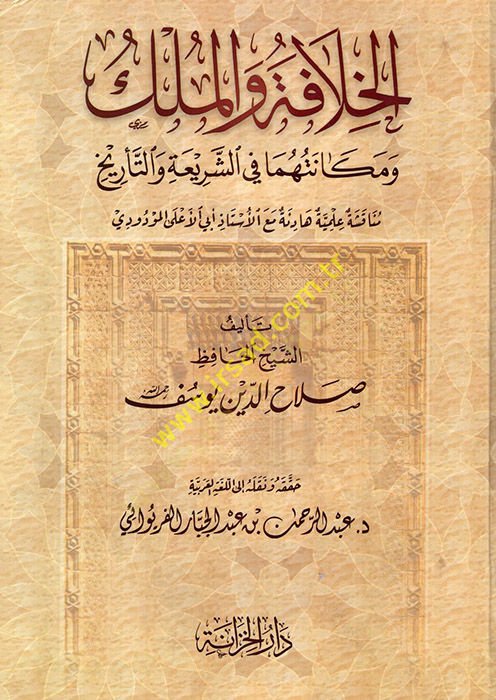 الخِلافَةُ وَالمُلْكُ
وَمَكَانَتُهُمَا فِي الشَّرِيعَةِ وَالتَّأْرِيخِ
مُنَاقَشَةٌ عِلْمِيَّةٌ هَادِئَةٌ مَعَ الأُسْتَاذِ أَبِي الأَعْلَى المَوْدُودِيّ
تَأْلِيفُ
الشَّيْخِ الحَافِظِ
صَلَاحِ الدِّين يُوسُف رحمه الله
حَقَّقَهُ وَنَقَلَهُ إِلَى اللُّغَةِ العَرَبِيَّةِ
د. عَبْد الرَّحْمٰن بن عَبْد الجَبَّار الفَرِيوَائِي
دَارُ الخِزَانَةِ
www.irsad.com.tr